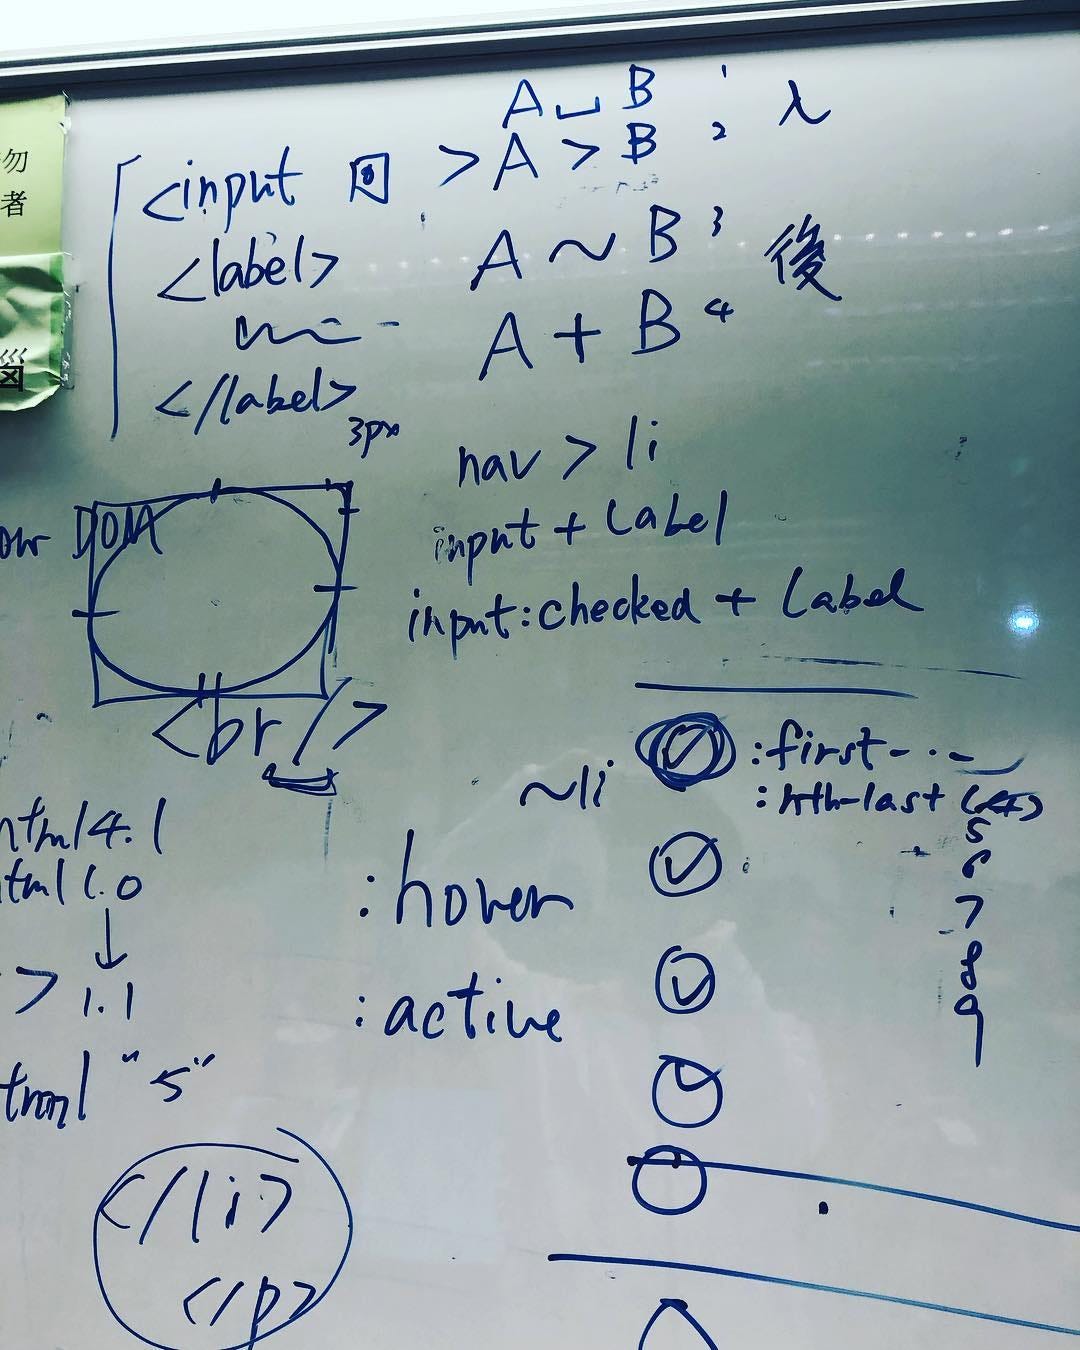 勿
者
A ␣ B 1 入
A > B 2
<input 回 >
<label>
</label>
A ~ B 3 後
A + B 4
3px
nav > li
input + label
input:checked + label
DOM
<br />
~li
:first-...
:nth-last (4)
5
6
7
8
9
:hover
:active
html 4.1
html 1.0
↓
> 1.1
html "5"
</li>
</p>